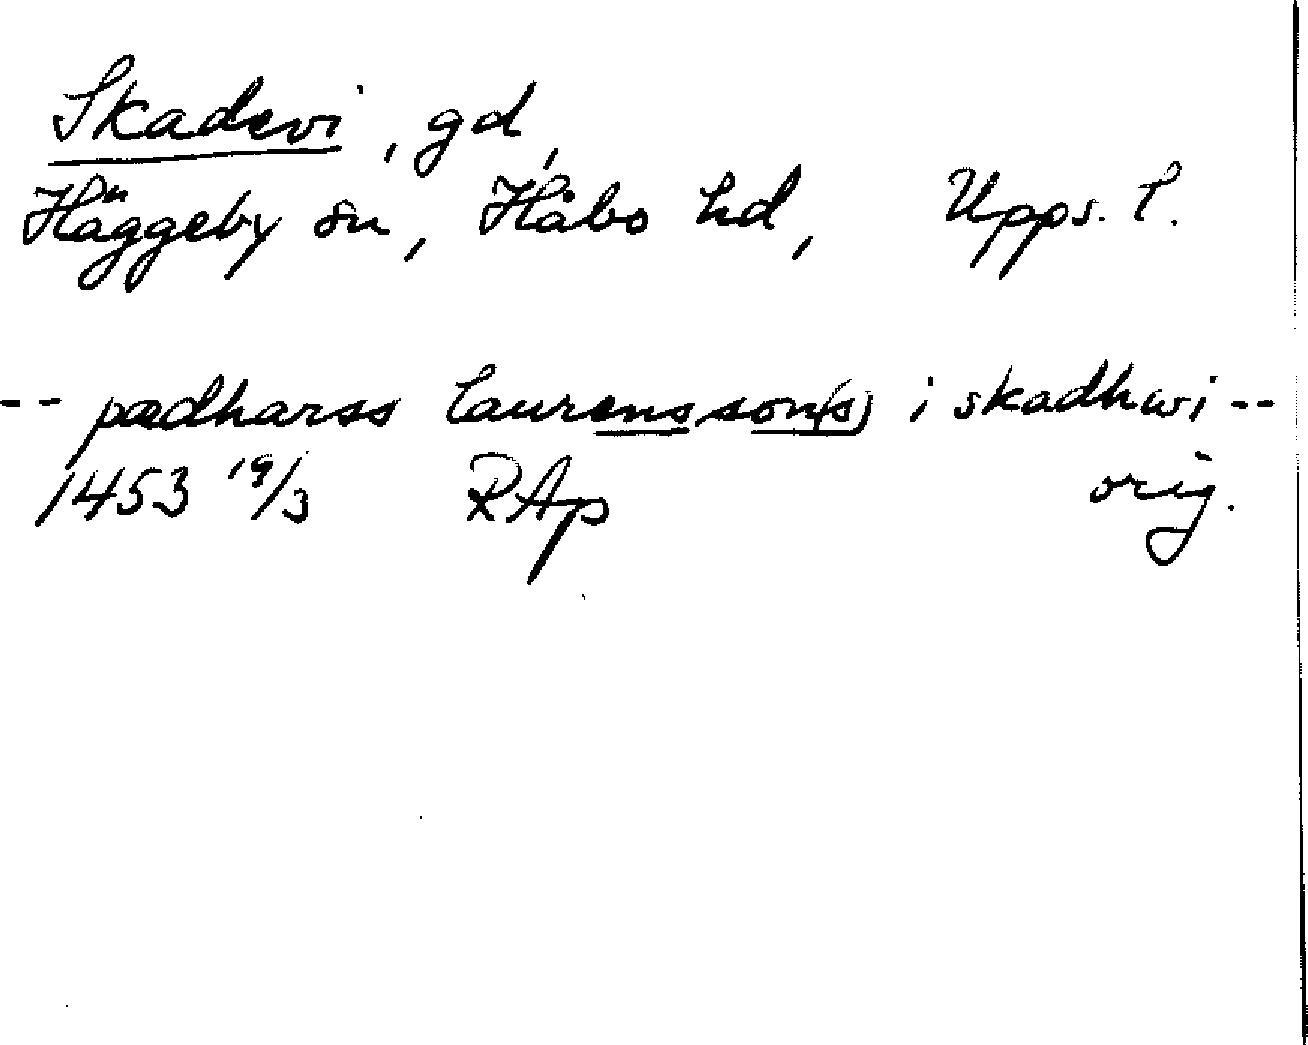 Skadevi, gd,
Häggeby sn, Håbo hd, Upps. l.
-- pædharss laurensson(s) i skadhwi --
1453 19/3 RAp orig.